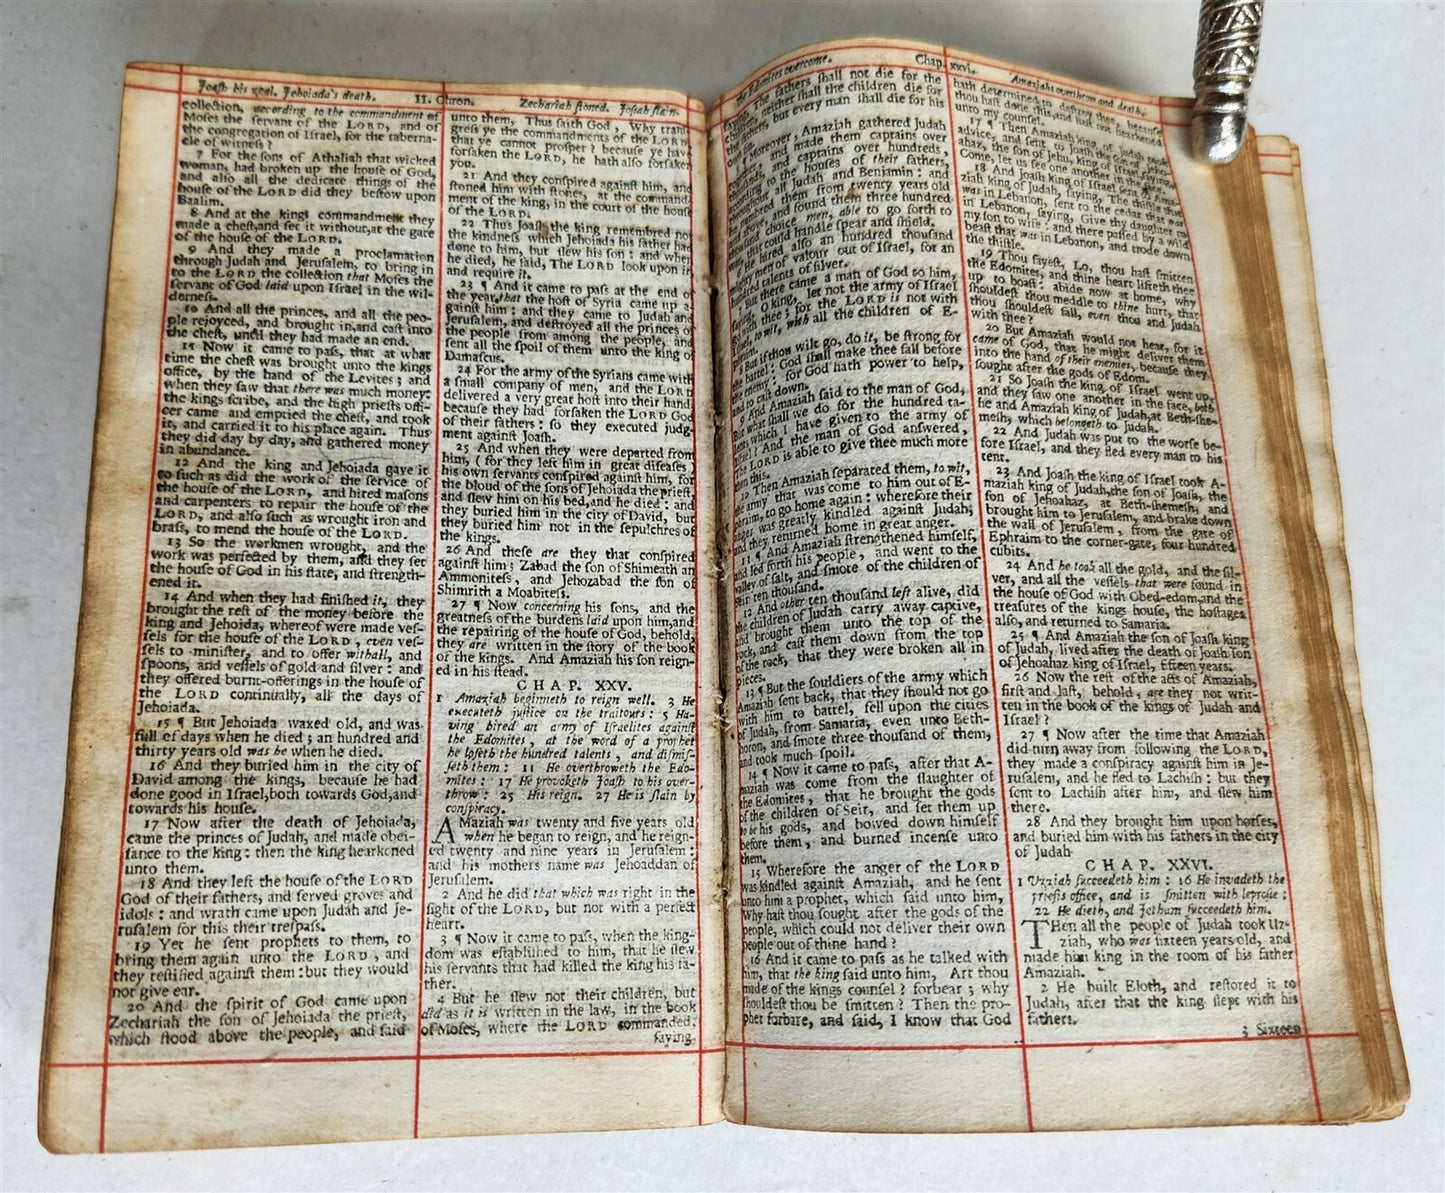 Joash his zeal. Jehoiada's death. II. Chron. Zechariah stoned. Josiah slain.
collection, according to the commandment of
Moses the servant of the LORD, and of
the congregation of Israel, for the taberna-
cle of witness?
7 For the sons of Athaliah that wicked
woman, had broken up the house of God,
and also all the dedicate things of the
house of the LORD did they bestow upon
Baalim.
8 And at the kings commandment they
made a chest, and set it without, at the gate
of the house of the LORD.
9 And they made a proclamation
through Judah and Jerusalem, to bring in
to the LORD the collection that Moses the
servant of God laid upon Israel in the wil-
derness.
10 And all the princes, and all the peo-
ple rejoyced, and brought in, and cast into
the chest, until they had made an end.
11 Now it came to pass, that at what
time the chest was brought unto the kings
office, by the hand of the Levites; and
when they saw that there was much money:
the kings scribe, and the high priests offi-
cer came and emptied the chest, and took
it, and carried it to his place again. Thus
they did day by day, and gathered money
in abundance.
12 And the king and Jehoiada gave it
to such as did the work of the service of
the house of the LORD, and hired masons
and carpenters to repair the house of the
LORD, and also such as wrought iron and
brass, to mend the house of the LORD.
13 So the workmen wrought, and the
work was perfected by them, and they set
the house of God in his state, and strength-
ened it.
14 And when they had finished it, they
brought the rest of the money before the
king and Jehoida, whereof were made ves-
sels for the house of the LORD, even ves-
sels to minister, and to offer withall, and
spoons, and vessels of gold and silver: and
they offered burnt-offerings in the house of
the LORD continually, all the days of
Jehoiada.
15 ¶ But Jehoiada waxed old, and was
full of days when he died; an hundred and
thirty years old was he when he died.
16 And they buried him in the city of
David among the kings, because he had
done good in Israel, both towards God, and
towards his house.
17 Now after the death of Jehoiada,
came the princes of Judah, and made obei-
sance to the king: then the king hearkened
unto them.
18 And they left the house of the LORD
God of their fathers, and served groves and
idols: and wrath came upon Judah and Je-
rusalem for this their trespass.
19 Yet he sent prophets to them, to
bring them again unto the LORD, and
they testified against them: but they would
not give ear.
20 And the spirit of God came upon
Zechariah the son of Jehoiada the priest,
which stood above the people, and said
unto them, Thus saith God, Why trans-
gress ye the commandments of the LORD,
that ye cannot prosper? because ye have
forsaken the LORD, he hath also forsaken
you.
21 And they conspired against him, and
stoned him with stones, at the command-
ment of the king, in the court of the house
of the LORD.
22 Thus Joash the king remembred not
the kindness which Jehoiada his father had
done to him, but slew his son: and when
he died, he said, The LORD look upon it,
and require it.
23 ¶ And it came to pass at the end of
the year, that the host of Syria came up a-
gainst him: and they came to Judah and
Jerusalem, and destroyed all the princes of
the people from among the people, and
sent all the spoil of them unto the king of
Damascus.
24 For the army of the Syrians came with
a small company of men, and the LORD
delivered a very great host into their hand,
because they had forsaken the LORD God
of their fathers: so they executed judg-
ment against Joash.
25 And when they were departed from
him, (for they left him in great diseases)
his own servants conspired against him, for
the bloud of the sons of Jehoiada the priest,
and slew him on his bed, and he died: and
they buried him in the city of David, but
they buried him not in the sepulchres of
the kings.
26 And these are they that conspired
against him; Zabad the son of Shimeath an
Ammonitess, and Jehozabad the son of
Shimrith a Moabitess.
27 ¶ Now concerning his sons, and the
greatness of the burdens laid upon him, and
the repairing of the house of God, behold,
they are written in the story of the book
of the kings. And Amaziah his son reign-
ed in his stead.
CHAP. XXV.
1 Amaziah beginneth to reign well. 3 He
executeth justice on the traitours: 5 Ha-
ving hired an army of Israelites against
the Edomites, at the word of a prophet
he loseth the hundred talents, and dismis-
seth them: 11 He overthroweth the Edo-
mites: 17 He provoketh Joash to his over-
throw: 25 His reign. 27 He is slain by
conspiracy.
AMaziah was twenty and five years old
when he began to reign, and he reign-
ed twenty and nine years in Jerusalem:
and his mothers name was Jehoaddan of
Jerusalem.
2 And he did that which was right in the
sight of the LORD, but not with a perfect
heart.
3 ¶ Now it came to pass, when the king-
dom was established to him, that he slew
his servants that had killed the king his fa-
ther.
4 But he slew not their children, but
did as it is written in the law, in the book
of Moses, where the LORD commanded,
saying,
The Edomites overcome. Chap. xxvi. Amaziahs overthrow and death.
saying, The fathers shall not die for the
children, neither shall the children die for
the fathers, but every man shall die for his
own sin.
5 ¶ Moreover, Amaziah gathered Judah
together, and made them captains over
thousands, and captains over hundreds,
according to the houses of their fathers,
throughout all Judah and Benjamin: and
he numbred them from twenty years old
and above, and found them three hundred
thousand choice men, able to go forth to
war, that could handle spear and shield.
6 He hired also an hundred thousand
mighty men of valour out of Israel, for an
hundred talents of silver.
7 But there came a man of God to him,
saying, O king, let not the army of Israel
go with thee; for the LORD is not with
Israel, to wit, with all the children of E-
phraim.
8 But if thou wilt go, do it, be strong for
the battel: God shall make thee fall before
the enemy: for God hath power to help,
and to cast down.
9 And Amaziah said to the man of God,
But what shall we do for the hundred ta-
lents which I have given to the army of
Israel? And the man of God answered,
The LORD is able to give thee much more
then this.
10 Then Amaziah separated them, to wit,
the army that was come to him out of E-
phraim, to go home again: wherefore their
anger was greatly kindled against Judah,
and they returned home in great anger.
11 ¶ And Amaziah strengthened himself,
and led forth his people, and went to the
valley of salt, and smote of the children of
Seir ten thousand.
12 And other ten thousand left alive, did
the children of Judah carry away captive,
and brought them unto the top of the
rock, and cast them down from the top
of the rock, that they were broken all in
pieces.
13 ¶ But the souldiers of the army which
Amaziah sent back, that they should not go
with him to battel, fell upon the cities
of Judah, from Samaria, even unto Beth-
horon, and smote three thousand of them,
and took much spoil.
14 ¶ Now it came to pass, after that A-
maziah was come from the slaughter of
the Edomites, that he brought the gods
of the children of Seir, and set them up
to be his gods, and bowed down himself
before them, and burned incense unto
them.
15 Wherefore the anger of the LORD
was kindled against Amaziah, and he sent
unto him a prophet, which said unto him,
Why hast thou sought after the gods of the
people, which could not deliver their own
people out of thine hand?
16 And it came to pass as he talked with
him, that the king said unto him, Art thou
made of the kings counsel? forbear; why
shouldest thou be smitten? Then the pro-
phet forbare, and said, I know that God
hath determined to destroy thee, because
thou hast done this, and hast not hearkened
unto my counsel.
17 ¶ Then Amaziah king of Judah took
advice, and sent to Joash the son of Jeho-
ahaz, the son of Jehu, king of Israel, saying,
Come, let us see one another in the face.
18 And Joash king of Israel sent to Ama-
ziah king of Judah, saying, The thistle that
was in Lebanon, sent to the cedar that was
in Lebanon, saying, Give thy daughter to
my son to wife: and there passed by a wild
beast that was in Lebanon, and trode down
the thistle.
19 Thou sayest, Lo, thou hast smitten
the Edomites, and thine heart lifteth thee
up to boast: abide now at home, why
shouldest thou meddle to thine hurt, that
thou shouldest fall, even thou and Judah
with thee?
20 But Amaziah would not hear, for it
came of God, that he might deliver them
into the hand of their enemies, because they
sought after the gods of Edom.
21 So Joash the king of Israel went up,
and they saw one another in the face, both
he and Amaziah king of Judah, at Beth-she-
mesh, which belongeth to Judah.
22 And Judah was put to the worse be-
fore Israel, and they fled every man to his
tent.
23 And Joash the king of Israel took A-
maziah king of Judah, the son of Joash, the
son of Jehoahaz, at Beth-shemesh, and
brought him to Jerusalem, and brake down
the wall of Jerusalem, from the gate of
Ephraim to the corner-gate, four hundred
cubits.
24 And he took all the gold, and the sil-
ver, and all the vessels that were found in
the house of God with Obed-edom, and the
treasures of the kings house, the hostages
also, and returned to Samaria.
25 ¶ And Amaziah the son of Joash king
of Judah, lived after the death of Joash son
of Jehoahaz king of Israel, fifteen years.
26 Now the rest of the acts of Amaziah,
first and last, behold, are they not writ-
ten in the book of the kings of Judah and
Israel?
27 ¶ Now after the time that Amaziah
did turn away from following the LORD,
they made a conspiracy against him in Je-
rusalem, and he fled to Lachish: but they
sent to Lachish after him, and slew him
there.
28 And they brought him upon horses,
and buried him with his fathers in the city
of Judah
CHAP. XXVI.
1 Uzziah succeedeth him: 16 He invadeth the
priests office, and is smitten with leprosie:
22 He dieth, and Jotham succeedeth him.
THen all the people of Judah took Uz-
ziah, who was sixteen years old, and
made him king in the room of his father
Amaziah.
2 He built Eloth, and restored it to
Judah, after that the king slept with his
fathers.
3 Sixteen